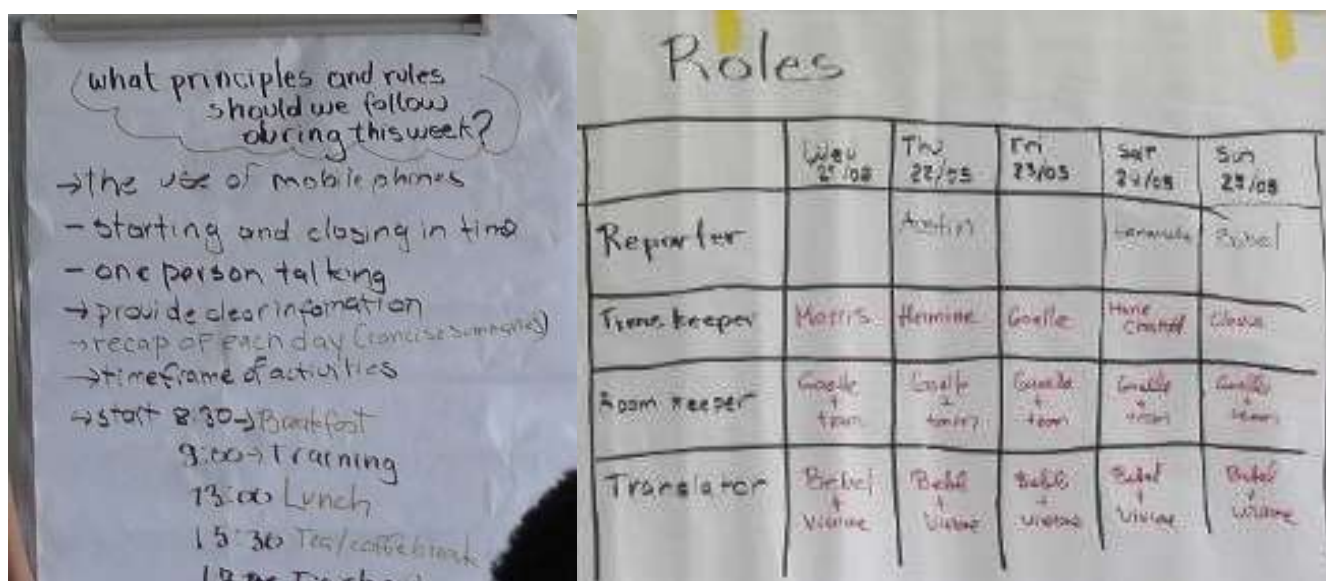 what principles and rules
should we follow
during this week?
→ the use of mobile phones
- starting and closing in time
- one person talking
→ provide clear infomation
→ recap of each day (concise summaries)
→ timeframe of activities
→ start 8:30 → Breakfast
9:00 → Training
13:00 Lunch
15:30 Tea/coffee break
Roles
Wed Thu 22/05 Fri 23/05 Sat 24/05 Sun 25/05
Reporter
Time keeper Morris Hermine Goelle
Room keeper Goelle + team Goelle + Goelle + team Goelle + team Goelle + team
Translator Bebel + Viviane Bebel + Viviane Bebel + Viviane Bebel + Viviane Bebel + Viviane